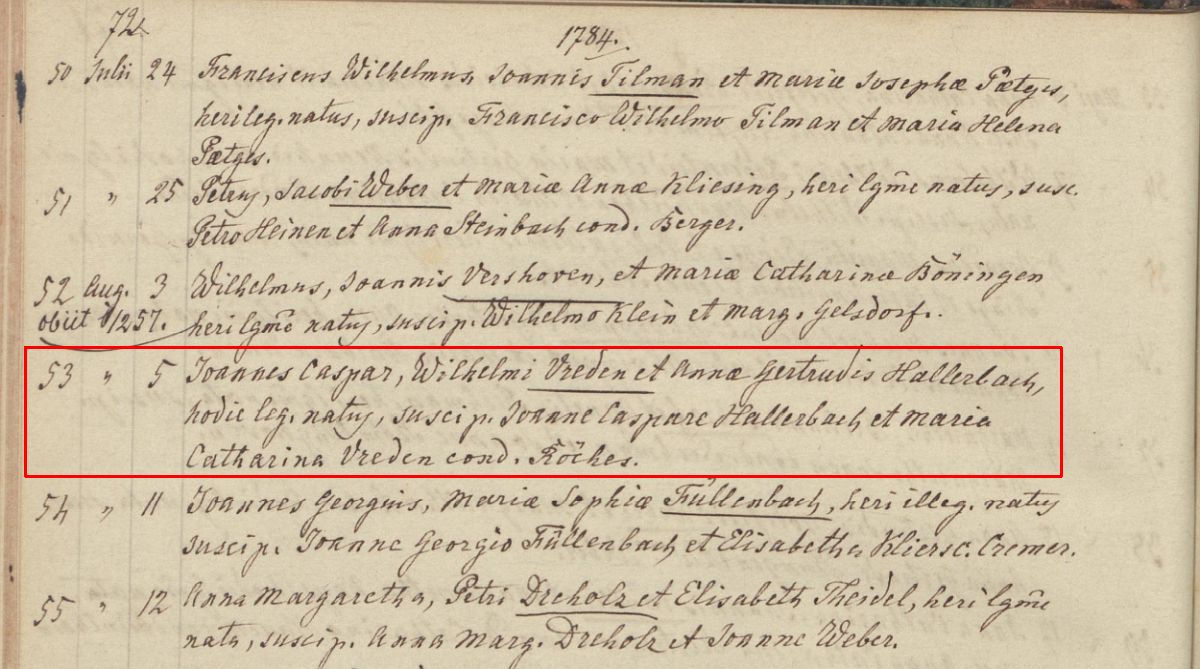 72.
1784.
50 Julii 24 Franciscus Wilhelmus, Joannis Tilman et Mariæ Josephæ Pætges,
heri leg. natus, suscip. Francisco Wilhelmo Tilman et Maria Helena
Pætges.
51 " 25 Petrus, Jacobi Weber et Mariæ Annæ Kliesing, heri lgme natus, susc.
Petro Heinen et Anna Steinbach cond. Berger.
52 Aug. 3 Wilhelmus, Joannis Vershoven, et Mariæ Catharinæ Böningen
obiit 1257. heri lgme natus, suscip. Wilhelmo Klein et Marg. Gelsdorf.
53 " 5 Joannes Caspar, Wilhelmi Vreden et Annæ Gertrudis Hallerbach,
hodie leg. natus, suscip. Joanne Caspare Hallerbach et Maria
Catharina Vreden cond. Röches.
54 " 11 Joannes Georgius, Mariæ Sophiæ Füllenbach, heri illeg. natus
suscip. Joanne Georgio Füllenbach et Elisabetha Kliersc. Cremer.
55 " 12 Anna Margaretha, Petri Dreholz et Elisabeth Theidel, heri lgme
nata, suscip. Anna Marg. Dreholz et Joanne Weber.